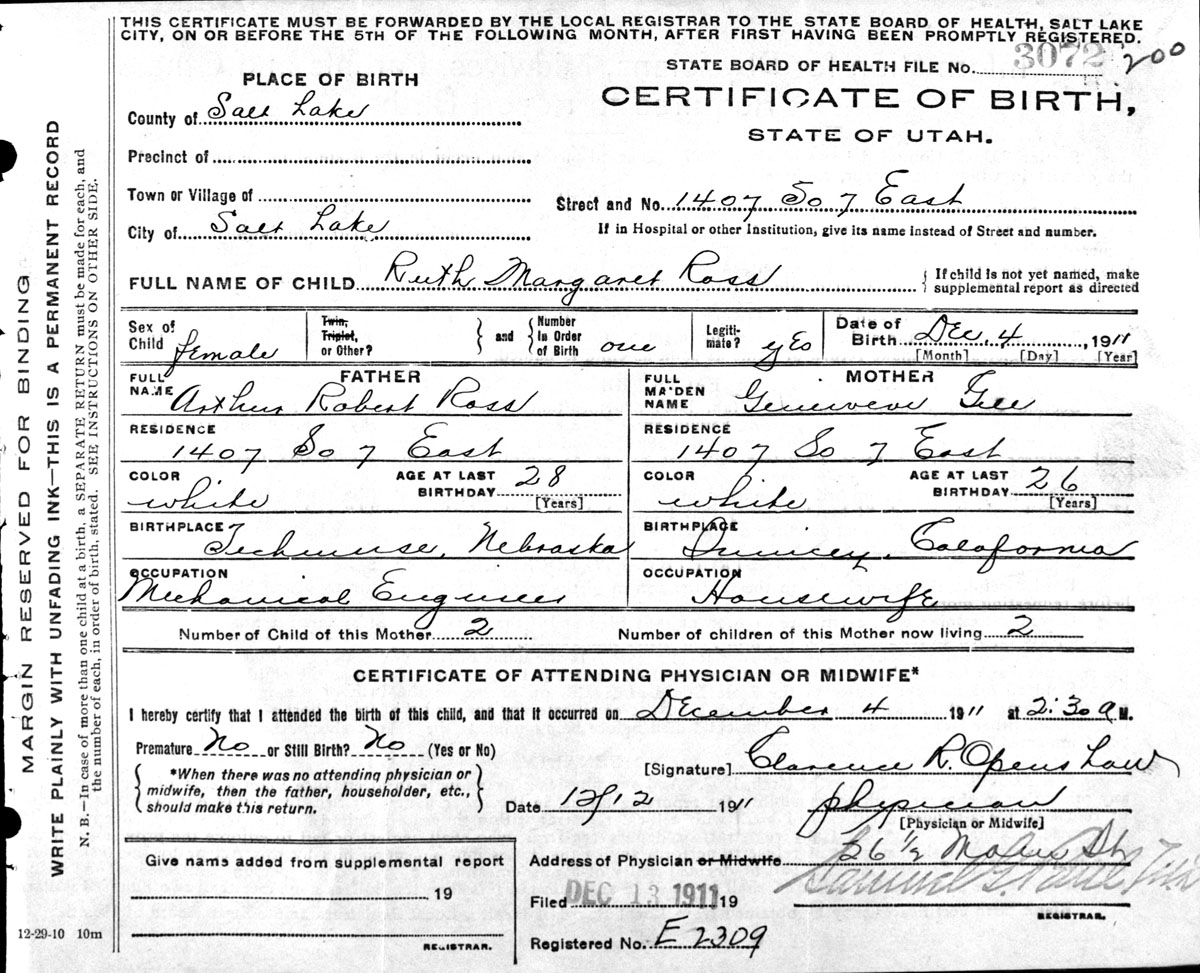 THIS CERTIFICATE MUST BE FORWARDED BY THE LOCAL REGISTRAR TO THE STATE BOARD OF HEALTH, SALT LAKE
CITY, ON OR BEFORE THE 5TH OF THE FOLLOWING MONTH, AFTER FIRST HAVING BEEN PROMPTLY REGISTERED.
STATE BOARD OF HEALTH FILE No. 3072 200
PLACE OF BIRTH
CERTIFICATE OF BIRTH,
STATE OF UTAH.
County of Salt Lake
Precinct of
Town or Village of
Street and No. 1407 So 7 East
City of Salt Lake
If in Hospital or other Institution, give its name instead of Street and number.
FULL NAME OF CHILD Ruth Margaret Ross
{ If child is not yet named, make
supplemental report as directed
Sex of Child female
Twin, Triplet, or Other? } and { Number In Order of Birth one
Legiti-mate? yes
Date of Birth Dec. 4, 1911
[Month] [Day] [Year]
FATHER
FULL NAME Arthur Robert Ross
MOTHER
FULL MAIDEN NAME Genevieve Gee
RESIDENCE 1407 So 7 East
RESIDENCE 1407 So 7 East
COLOR white AGE AT LAST BIRTHDAY 28 [Years]
COLOR white AGE AT LAST BIRTHDAY 26 [Years]
BIRTHPLACE Techumse, Nebraska
BIRTHPLACE Quincey, California
OCCUPATION Mechanical Engineer
OCCUPATION Housewife
Number of Child of this Mother 2
Number of children of this Mother now living 2
CERTIFICATE OF ATTENDING PHYSICIAN OR MIDWIFE*
I hereby certify that I attended the birth of this child, and that it occurred on December 4 1911 at 2:30 a M.
Premature No or Still Birth? No (Yes or No)
{ *When there was no attending physician or
midwife, then the father, householder, etc.,
should make this return. }
[Signature] Clarence R. Openshaw
Date 12/12 1911 physician
[Physician or Midwife]
Give name added from supplemental report
19
REGISTRAR.
Address of Physician or Midwife 26 1/2 St
Filed DEC 13 1911 19
Samuel G.
REGISTRAR.
Registered No. E 2309
12-29-10 10m
MARGIN RESERVED FOR BINDING
WRITE PLAINLY WITH UNFADING INK—THIS IS A PERMANENT RECORD
N. B.—In case of more than one child at a birth, a SEPARATE RETURN must be made for each, and
the number of each, in order of birth, stated. SEE INSTRUCTIONS ON OTHER SIDE.